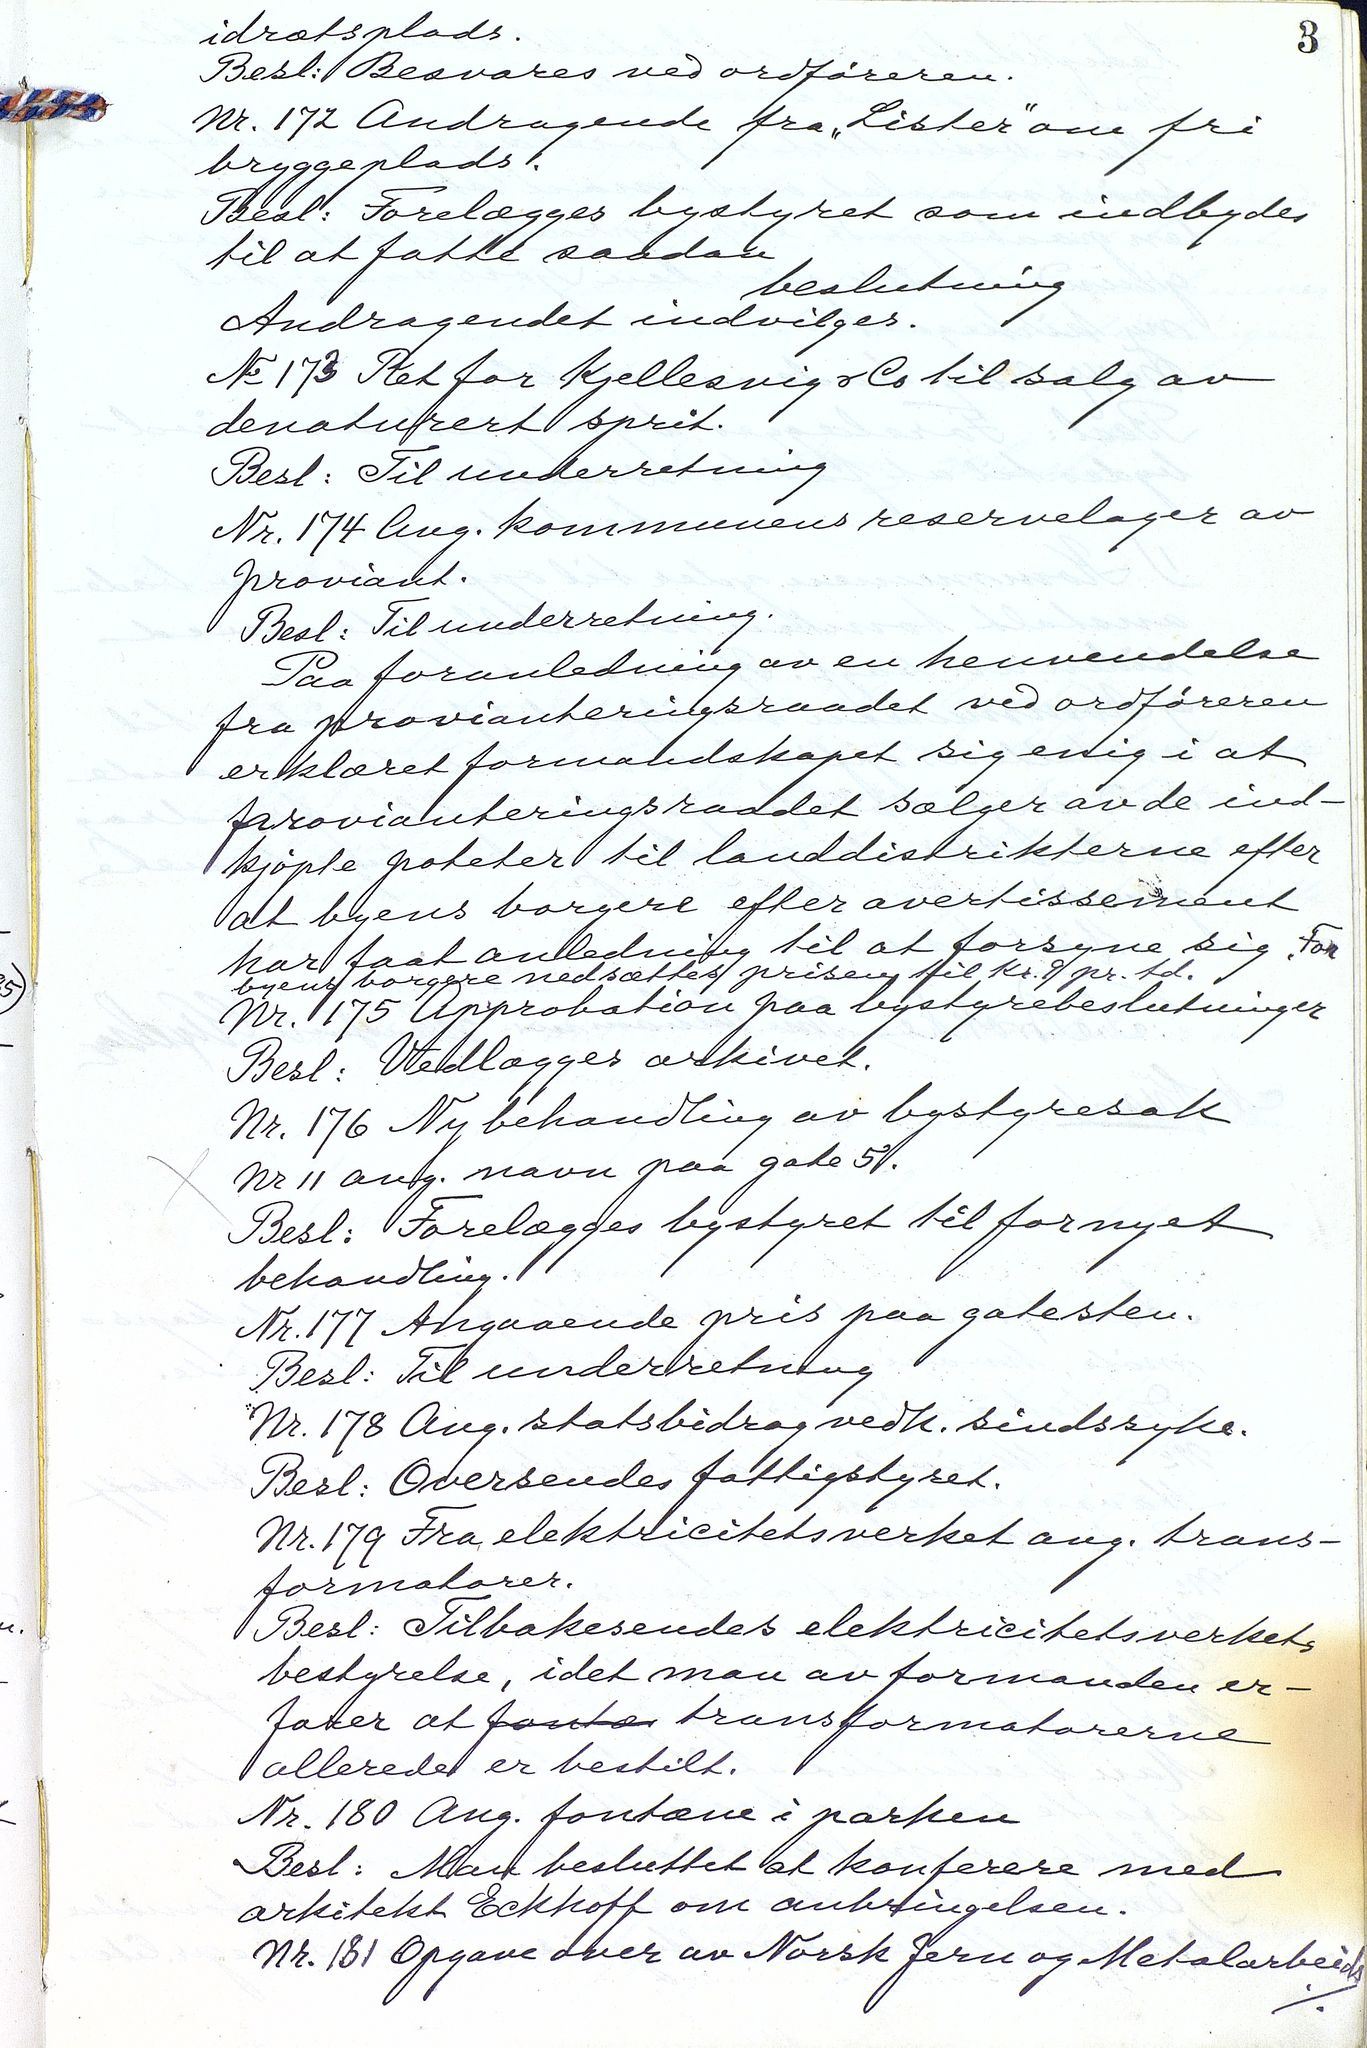 3
idrætsplads.
Besl: Besvares ved ordføreren.
Nr. 172 Andragende fra „Lister" om fri
bryggeplads.
Besl: Forelægges bystyret som indbydes
til at fatte saadan
beslutning
Andragendet indvilges.
№ 173 Ret for Kjellesvig & Co til salg av
denaturert sprit.
Besl: Til underretning
Nr. 174 Ang. kommunens reservelager av
proviant.
Besl: Til underretning.
Paa foranledning av en henvendelse
fra provianteringsraadet ved ordføreren
erklæret formandskapet sig enig i at
provianteringsraadet sælger av de ind-
kjøpte poteter til landdistrikterne efter
at byens borgere efter avertissement
har faat anledning til at forsyne sig. For
byens borgere nedsættes prisen til kr. 9 pr. td.
Nr. 175 Approbation paa bystyrebeslutninger
Besl: Vedlægges arkivet.
Nr. 176 Ny behandling av bystyresak
Nr 11 ang. navn paa gate 5.
Besl: Forelægges bystyret til fornyet
behandling.
Nr. 177 Angaaende pris paa gatesten.
Besl: Til underretning
Nr. 178 Ang. statsbidrag vedk. sindssyke.
Besl: Oversendes fattigstyret.
Nr. 179 Fra elektricitetsverket ang. trans-
formatorer.
Besl: Tilbakesendes elektricitetsverkets
bestyrelse, idet man av formanden er-
farer at transformatorerne
allerede er bestilt.
Nr. 180 Ang. fontæne i parken
Besl: Man besluttet at konferere med
arkitekt Eckhoff om anbringelsen.
Nr. 181 Opgave over av Norsk Jern og Metalarbeids